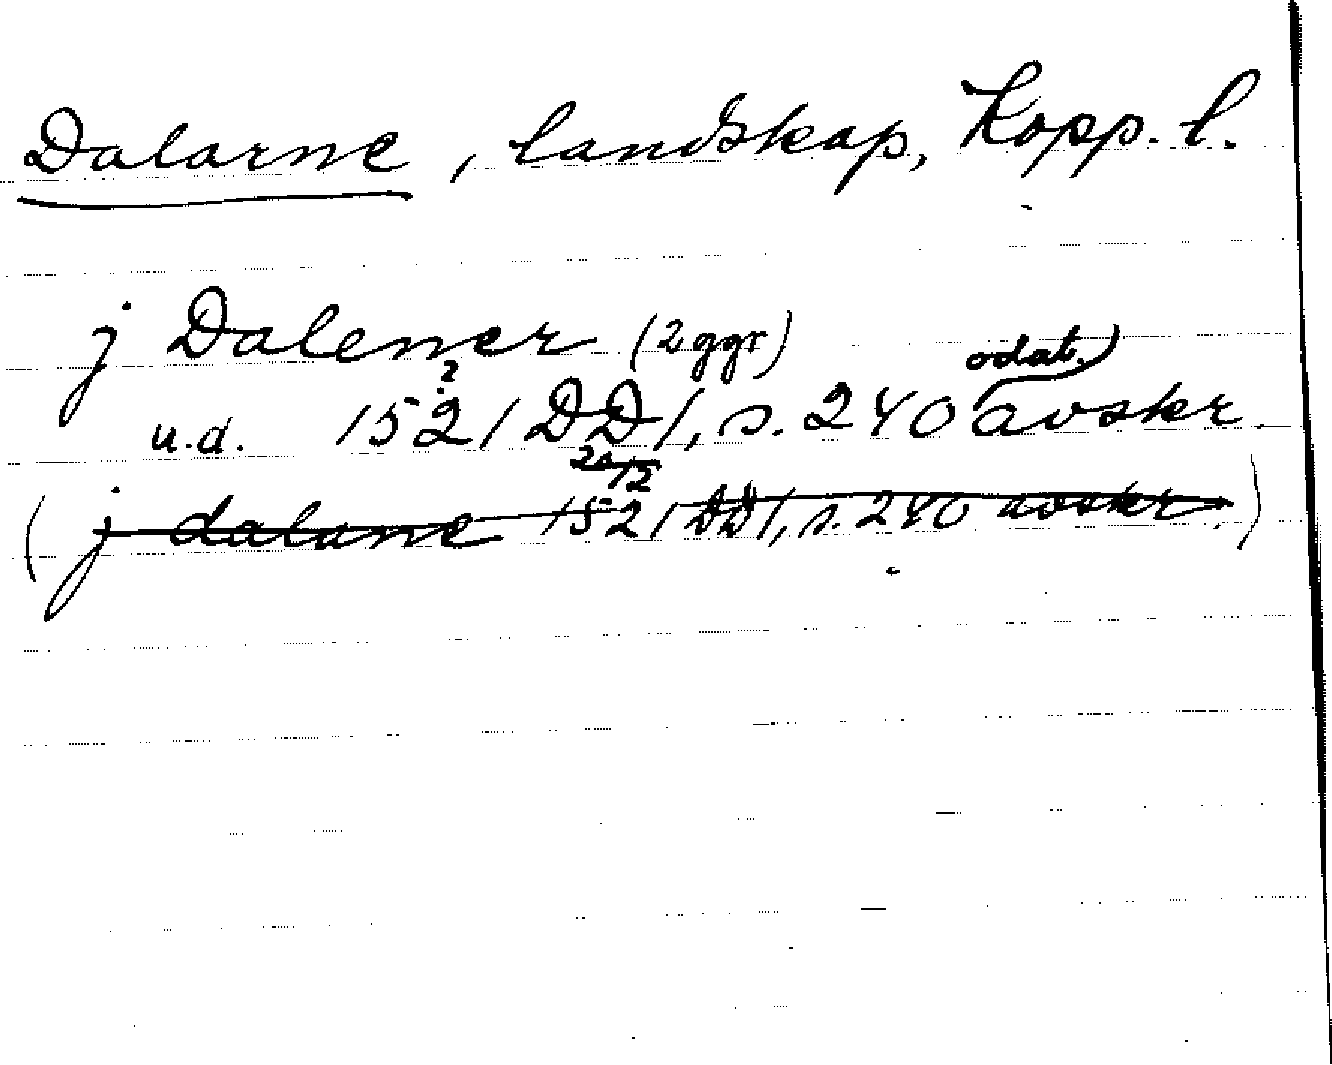 Dalarne, landskap, Kopp. l.
j Dalener (2 ggr)
u.d. 1521 DD1, s. 240 odat. avskr.
(j dalarne 20/12 1521 DD1, s. 240 avskr.)